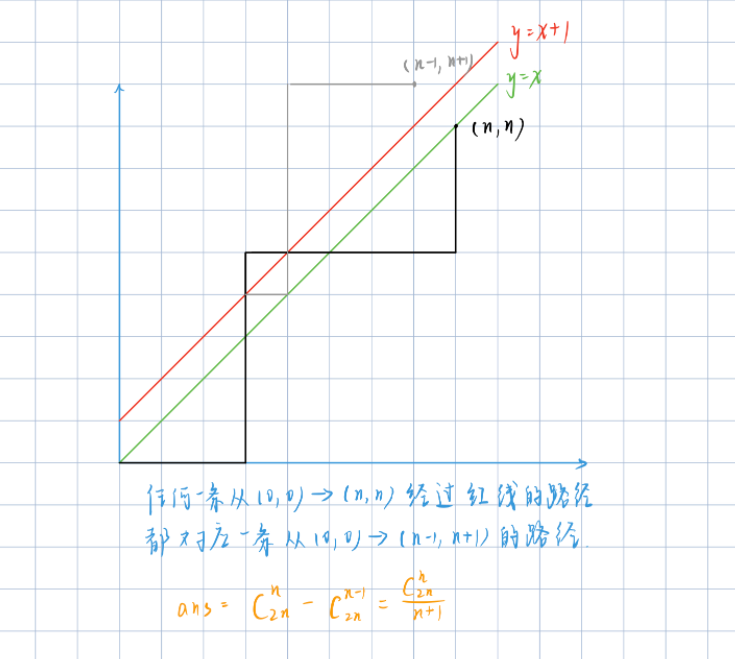 y=x+1
(n-1, n+1)
y=x
(n, n)
任何一条从(0,0)→(n,n)经过红线的路径
都对应一条从(0,0)→(n-1,n+1)的路径.
ans = C_{2n}^{n} - C_{2n}^{n-1} = \frac{C_{2n}^{n}}{n+1}